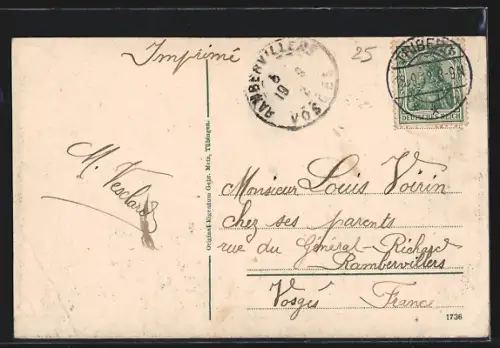 Imprimé
25
RAMBERVILLERS
VOSGES
TRIBERG
DEUTSCHES REICH
M.
Original-Eigentum Gebr. Metz, Tübingen.
Monsieur Louis Voirin
chez ses parents
rue du Général-Richard
Rambervillers
Vosges France
1736